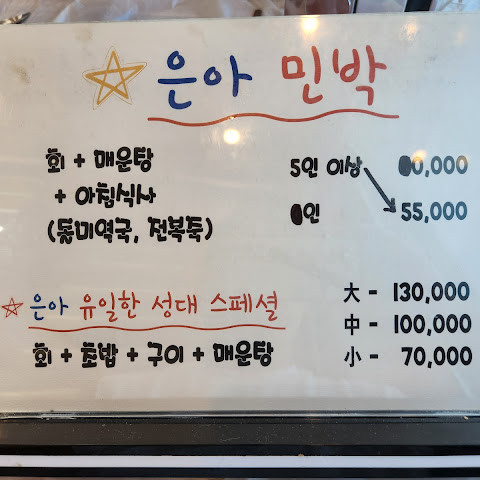 은아 민박
회 + 매운탕 5인 이상 0,000
+ 아침식사 인 55,000
(돌미역국, 전복죽)
은아 유일한 성대 스페셜 大 - 130,000
회 + 초밥 + 구이 + 매운탕 中 - 100,000
小 - 70,000